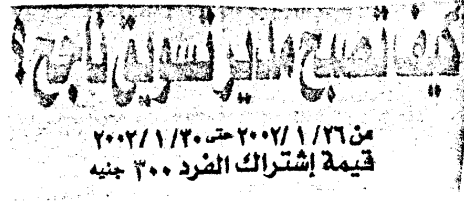 كيف تصبح مدير تسويق ناجح ؟
من ٢٦/ ١ /٢٠٠٢ حتى ٣٠/ ١ /٢٠٠٢
قيمة إشتراك الفرد ٣٠٠ جنيه